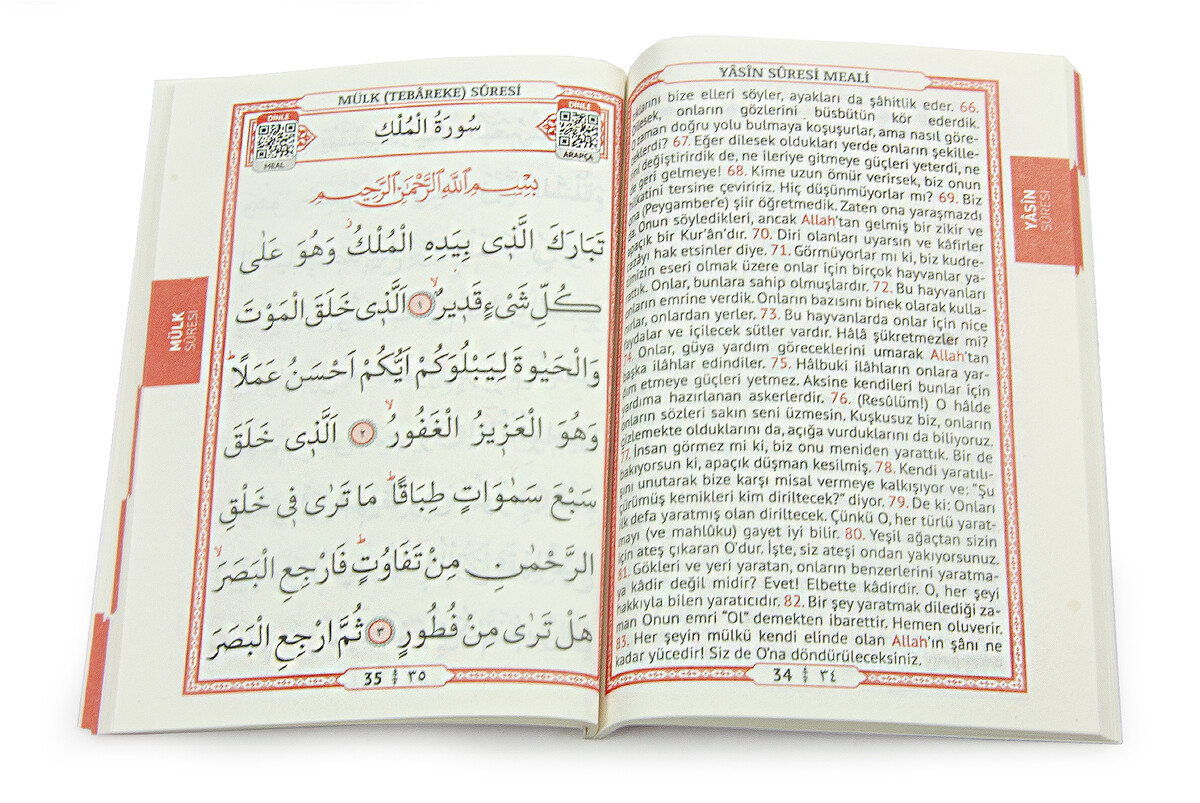 YÂSÎN SÛRESİ MEALİ
bize elleri söyler, ayakları da şâhitlik eder. 66.
dilesek, onların gözlerini büsbütün kör ederdik.
zaman doğru yolu bulmaya koşuşurlar, ama nasıl göre-
67. Eğer dilesek oldukları yerde onların şekille-
değiştirirdik de, ne ileriye gitmeye güçleri yeterdi, ne
geri gelmeye! 68. Kime uzun ömür verirsek, biz onun
tersine çeviririz. Hiç düşünmüyorlar mı? 69. Biz
ona (Peygamber'e) şiir öğretmedik. Zaten ona yaraşmazdı
da. Onun söyledikleri, ancak Allah'tan gelmiş bir zikir ve
apaçık bir Kur'ân'dır. 70. Diri olanları uyarsın ve kâfirler
cezâyı hak etsinler diye. 71. Görmüyorlar mı ki, biz kudre-
timizin eseri olmak üzere onlar için birçok hayvanlar ya-
rattık. Onlar, bunlara sahip olmuşlardır. 72. Bu hayvanları
onların emrine verdik. Onların bazısını binek olarak kulla-
nırlar, onlardan yerler. 73. Bu hayvanlarda onlar için nice
faydalar ve içilecek sütler vardır. Hâlâ şükretmezler mi?
74. Onlar, güya yardım göreceklerini umarak Allah'tan
başka ilâhlar edindiler. 75. Hâlbuki ilâhların onlara yar-
dım etmeye güçleri yetmez. Aksine kendileri bunlar için
yardıma hazırlanan askerlerdir. 76. (Resûlüm!) O hâlde
onların sözleri sakın seni üzmesin. Kuşkusuz biz, onların
gizlemekte olduklarını da, açığa vurduklarını da biliyoruz.
77. İnsan görmez mi ki, biz onu meniden yarattık. Bir de
bakıyorsun ki, apaçık düşman kesilmiş. 78. Kendi yaratılı-
şını unutarak bize karşı misal vermeye kalkışıyor ve: "Şu
çürümüş kemikleri kim diriltecek?" diyor. 79. De ki: Onları
ilk defa yaratmış olan diriltecek. Çünkü O, her türlü yarat-
mayı (ve mahlûku) gayet iyi bilir. 80. Yeşil ağaçtan sizin
için ateş çıkaran O'dur. İşte, siz ateşi ondan yakıyorsunuz.
81. Gökleri ve yeri yaratan, onların benzerlerini yaratma-
ya kâdir değil midir? Evet! Elbette kâdirdir. O, her şeyi
hakkıyla bilen yaratıcıdır. 82. Bir şey yaratmak dilediği za-
man Onun emri "Ol" demekten ibarettir. Hemen oluverir.
83. Her şeyin mülkü kendi elinde olan Allah'ın şânı ne
kadar yücedir! Siz de O'na döndürüleceksiniz.
34 ٣٤
YÂSÎN
SÛRESİ
MÜLK (TEBÂREKE) SÛRESİ
DİNLE
MEAL
سُورَةُ الْمُلْكِ
DİNLE
ARAPÇA
بِسْمِ اللّٰهِ الرَّحْمٰنِ الرَّحِيمِ
تَبَارَكَ الَّذ۪ي بِيَدِهِ الْمُلْكُۘ وَهُوَ عَلٰى
كُلِّ شَيْءٍ قَد۪يرٌۙ ﴿١﴾ اَلَّذ۪ي خَلَقَ الْمَوْتَ
وَالْحَيٰوةَ لِيَبْلُوَكُمْ اَيُّكُمْ اَحْسَنُ عَمَلًاۜ
وَهُوَ الْعَز۪يزُ الْغَفُورُۙ ﴿٢﴾ اَلَّذ۪ي خَلَقَ
سَبْعَ سَمٰوَاتٍ طِبَاقًاۜ مَا تَرٰى ف۪ي خَلْقِ
الرَّحْمٰنِ مِنْ تَفَاوُتٍۜ فَارْجِعِ الْبَصَرَۙ
هَلْ تَرٰى مِنْ فُطُورٍ ﴿٣﴾ ثُمَّ ارْجِعِ الْبَصَرَ
35 ٣٥
MÜLK
SÛRESİ